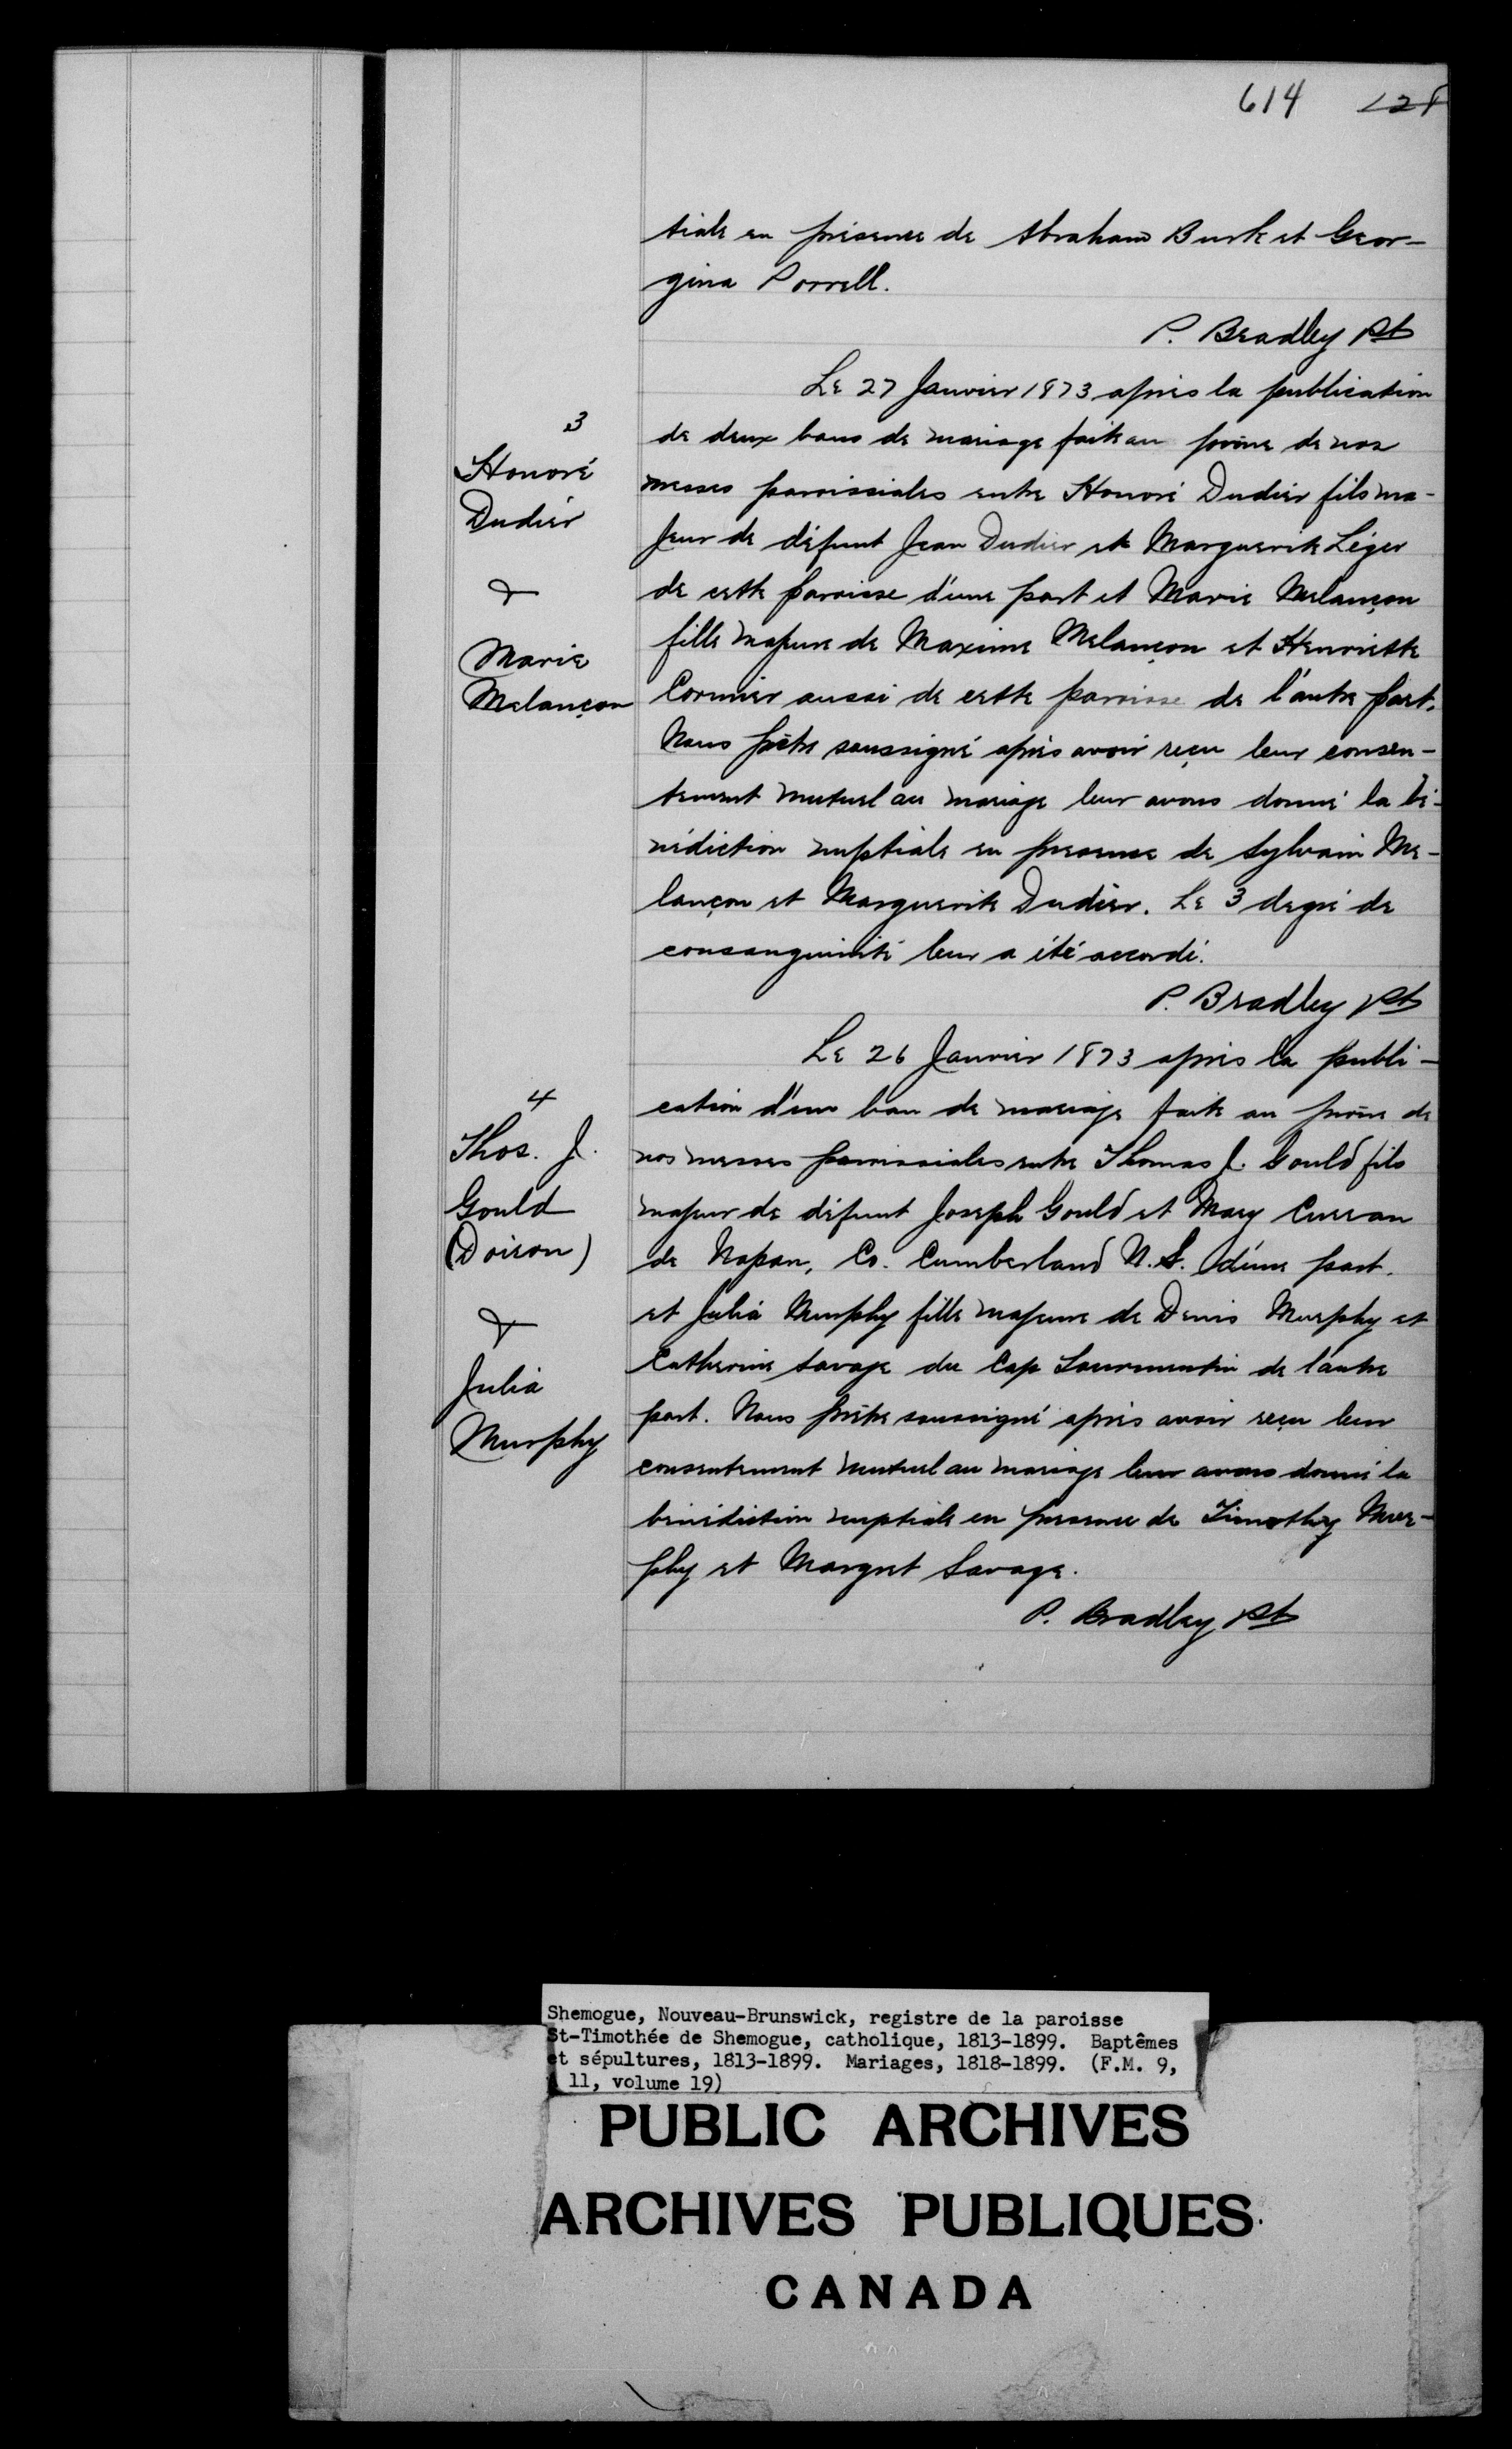 614 128
tiale en présence de Abraham Burk et Geor-
gina Porrell.
P. Bradley Pt
Le 27 Janvier 1873 après la publication
de deux bans de mariage faite au prône de nos
messes paroissiales entre Honoré Dudier fils ma-
jeur de défunt Jean Dudier et Marguerite Léger
de cette paroisse d'une part et Marie Melançon
fille majeure de Maxime Melançon et Henriette
Cormier aussi de cette paroisse de l'autre part.
Nous prêtre soussigné après avoir reçu leur consen-
tement mutuel au mariage leur avons donné la bé-
nédiction nuptiale en presence de Sylvain Me-
lançon et Marguerite Dudier. Le 3 degré de
consanguinité leur a été accordé.
P. Bradley Pt
3
Honoré
Dudier
&
Marie
Melançon
Le 26 Janvier 1873 après la publi-
cation d'un ban de mariage faite au prône de
nos messes paroissiales entre Thomas J. Gould fils
majeur de défunt Joseph Gould et Mary Curran
de Napan, Co. Cumberland N.S. d'une part.
et Julia Murphy fille majeure de Denis Murphy et
Catherine Savage du Cap Tourmentin de l'autre
part. Nous prêtre soussigné après avoir reçu leur
consentement mutuel au mariage leur avons donné la
bénédiction nuptiale en presence de Timothy Mur-
phy et Margret Savage.
P. Bradley Pt
4
Thos. J.
Gould
(Doiron)
&
Julia
Murphy
Shemogue, Nouveau-Brunswick, registre de la paroisse
St-Timothée de Shemogue, catholique, 1813-1899. Baptêmes
et sépultures, 1813-1899. Mariages, 1818-1899. (F.M. 9,
11, volume 19)
PUBLIC ARCHIVES
ARCHIVES PUBLIQUES
CANADA